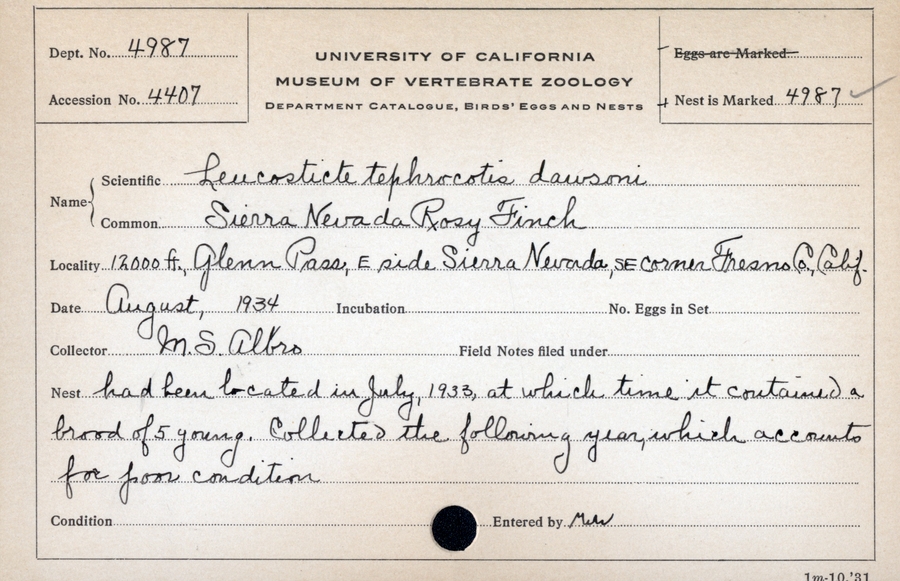 Dept. No. 4987
Accession No. 4407
UNIVERSITY OF CALIFORNIA
MUSEUM OF VERTEBRATE ZOOLOGY
DEPARTMENT CATALOGUE, BIRDS' EGGS AND NESTS
Eggs are Marked
Nest is Marked 4987
Name
Scientific Leucosticte tephrocotis dawsoni
Common Sierra Nevada Rosy Finch
Locality 12000 ft., Glenn Pass, E side Sierra Nevada, SE corner Fresno Co., Calif.
Date August, 1934 Incubation No. Eggs in Set
Collector M.S. Albro Field Notes filed under
Nest had been located in July, 1933, at which time it contained a
brood of 5 young. Collected the following year, which accounts
for poor condition
Condition Entered by
1m-10,'31